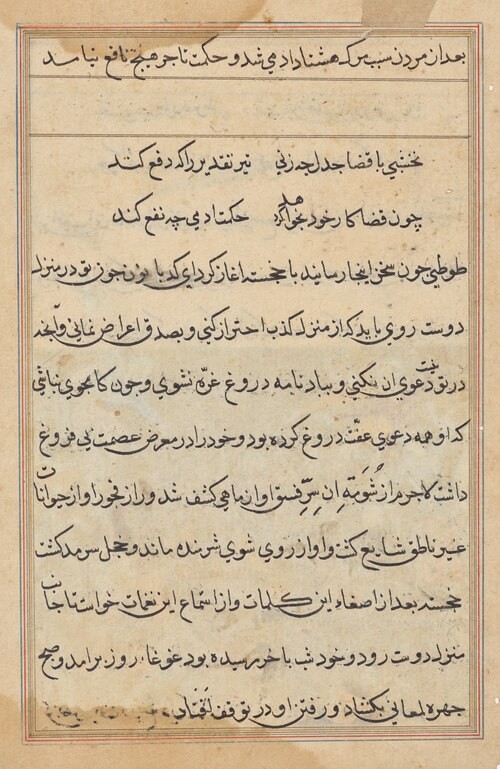 بعد از مردن سبب مرگ هشتاد ادمی شد و حکمت تاجر هیچ نافع نیامد
نخشبی با قضا جدل چه زنی تیر تقدیر را که دفع کند
چون قضا کار خود بخواهد کرد حکمت ادمی چه نفع کند
طوطی چون سخن اینجا رسانید با خجسته اغاز کرد ای کدبانو چون تو در منزل
دوست روی باید که از منزل کذب احتراز کنی و بصدق اعراض نمائی و آنچه
در تو نیست دعوی ان نکنی و بباد نامه دروغ غره نشوی و چون کامجوی نباشی
که او همه دعوی عفت دروغ کرده بود و خود را در معرض عصمت بی فروغ
داشت لاجرم از شومة ان سر فسق او از ماهی کشف شد و راز فجور او از حیوانات
غیر ناطق شایع گشت و او از روی شوی شرمنده ماند و خجل سرمد گشت
خجسته بعد از اصغاء این کلمات و از استماع این نغمات خواست تا جانب
منزل دوست رود و خود شب باخر رسیده بود غوغاء روز برامد و صبح
چهره لمعانی بکشاد و رفتن او در توقف افتاد